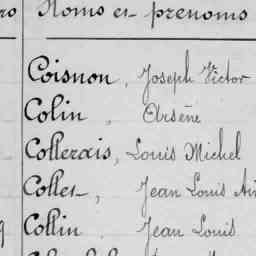 Noms et prénoms
Coisnon, Joseph Victor
Colin, Arsène
Collerais, Louis Michel
Colles, Jean Louis
Collin, Jean Louis